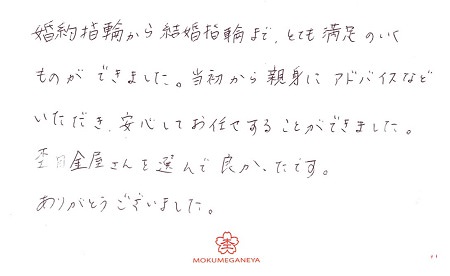 婚約指輪から結婚指輪まで、とても満足のいく
ものができました。当初から親身にアドバイスなど
いただき、安心してお任せすることができました。
杢目金屋さんを選んで良かったです。
ありがとうございました。
杢
MOKUMEGANEYA